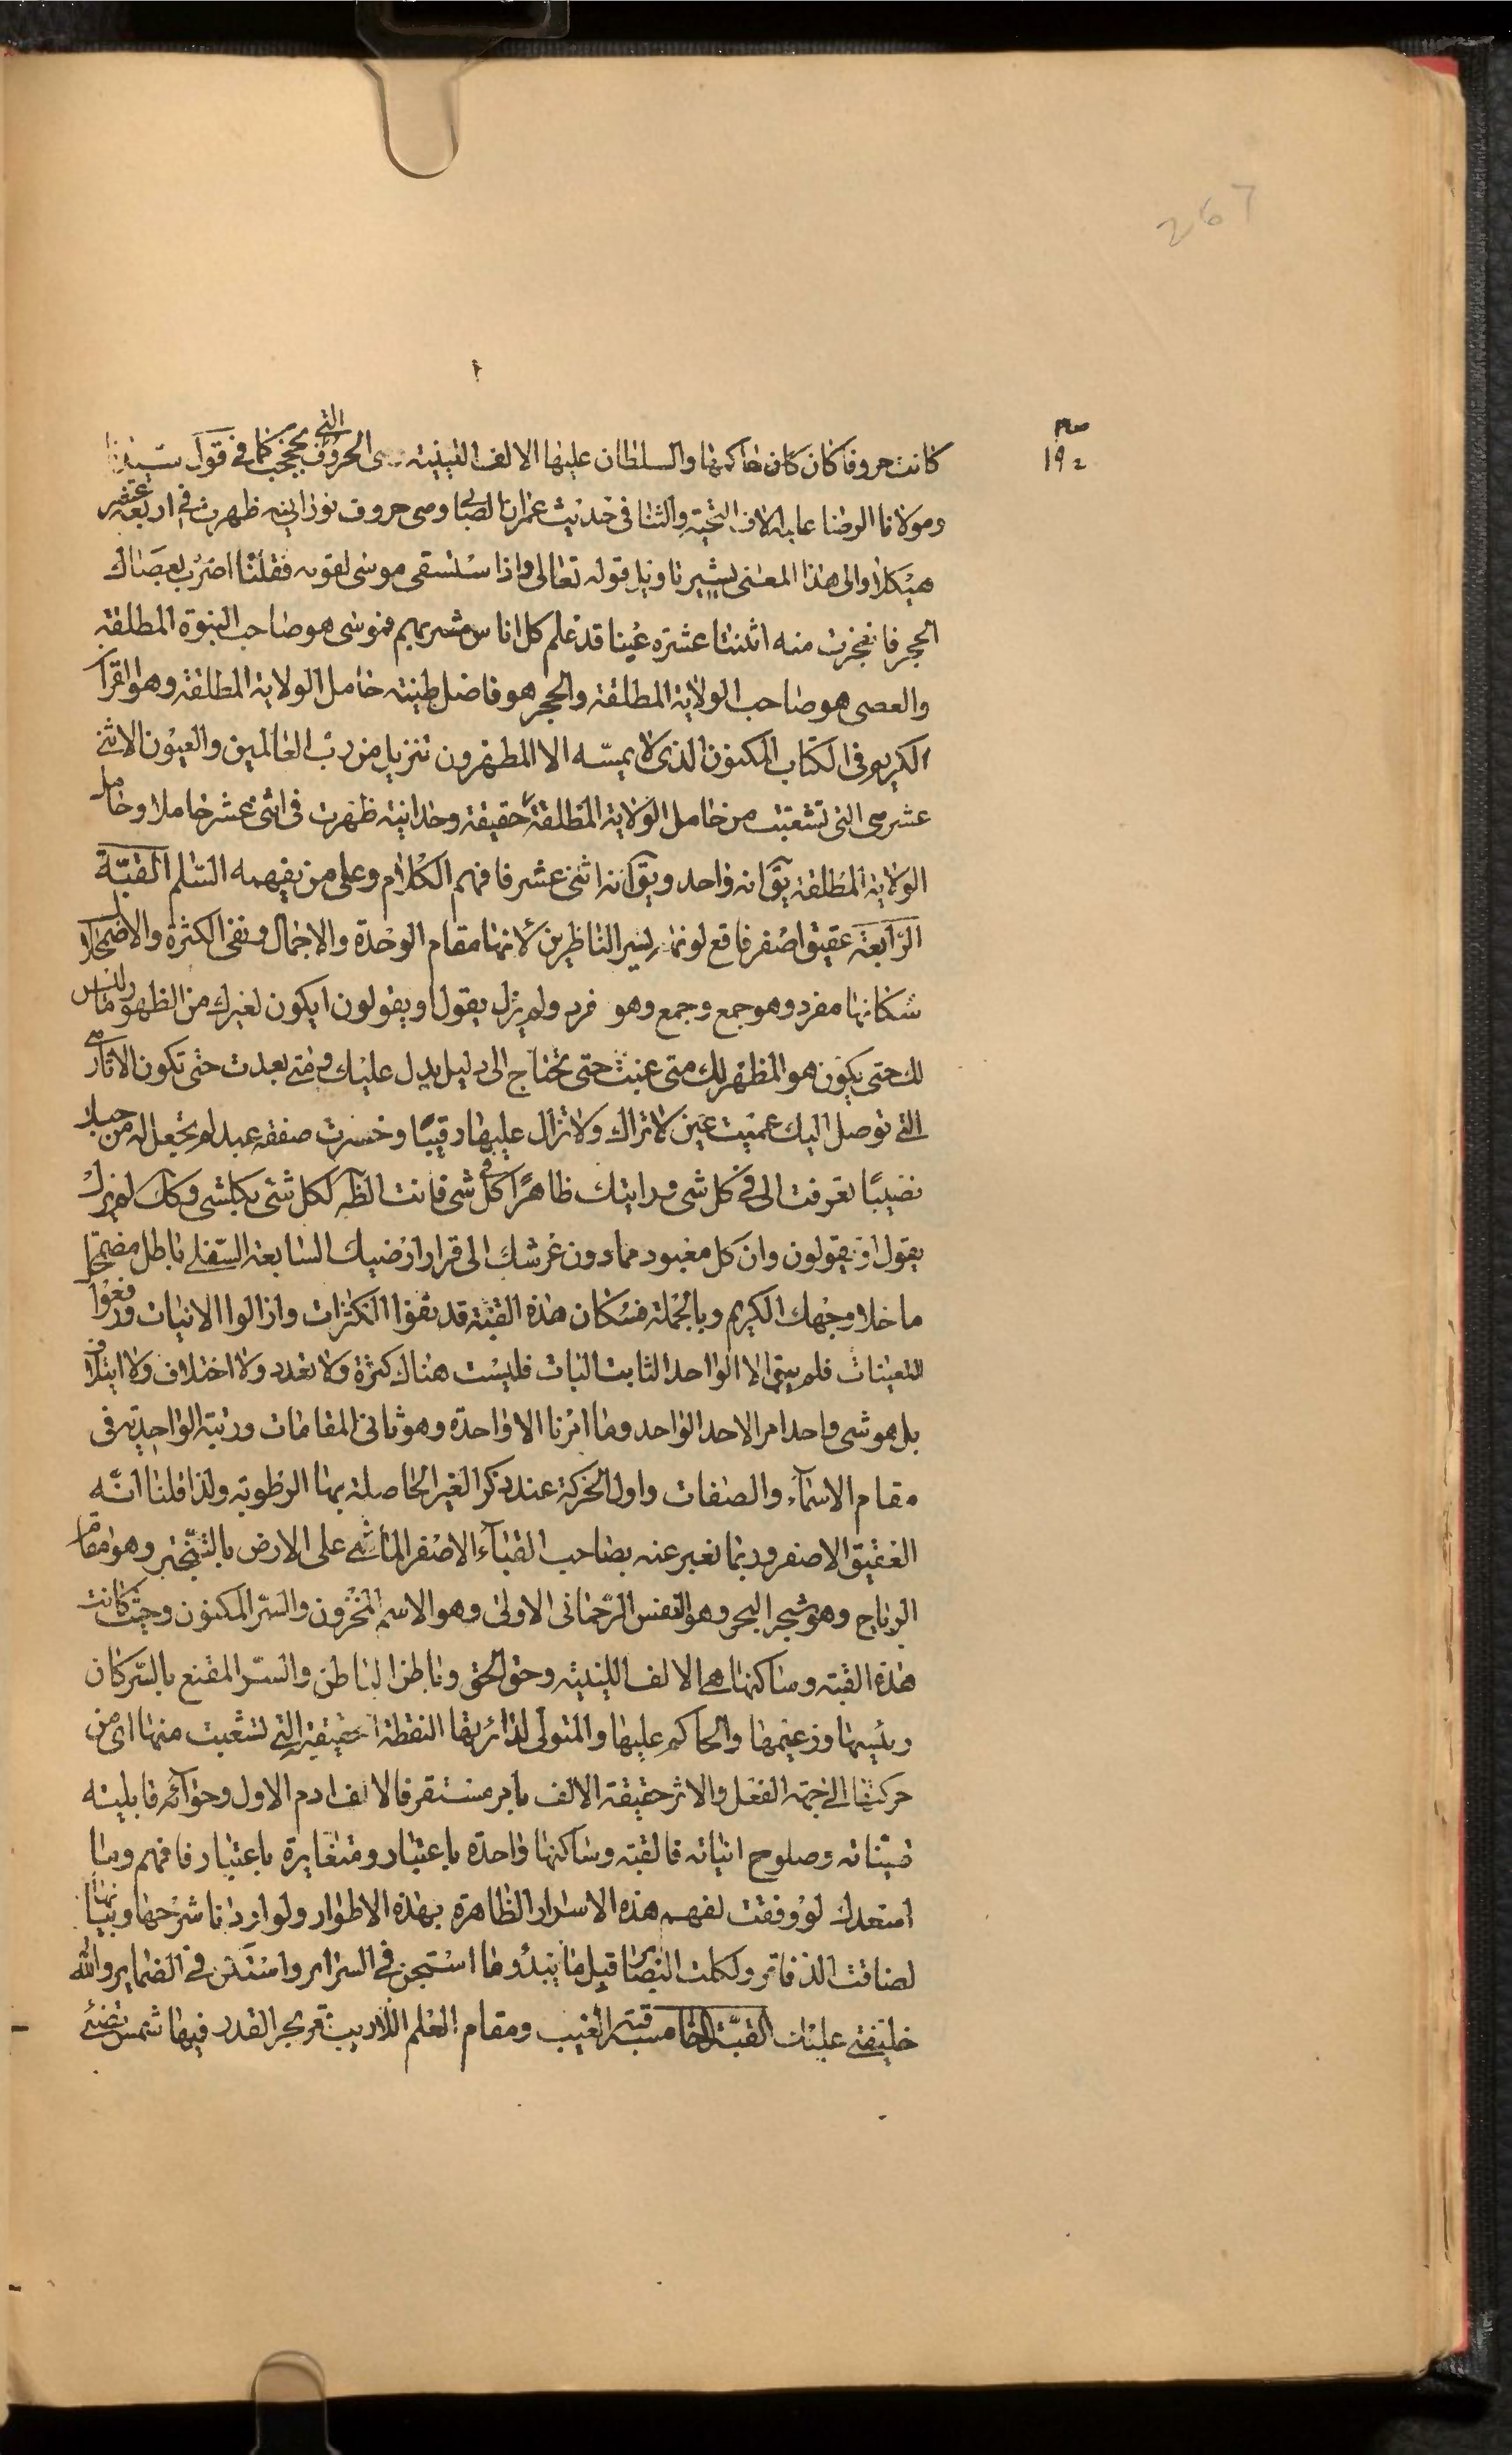 267
192
كانت حروفا كان كان حاكمها والسلطان عليها الالف اللينية الحروف التي كما في قول سيدنا
ومولانا الرضا عليه الاف التحية والثنا في حديث عمران الصابي وهي حروف نورانية ظهرت في اربعة عشر
هيكلا والى هذا المعنى يشير تاويل قوله تعالى واذا ستسقى موسى لقومه فقلنا اضرب بعصاك
الحجر فانفجرت منه اثنتا عشرة عينا قد علم كل اناس مشربهم فموسى هو صاحب النبوة المطلقة
والعصى هو صاحب الولاية المطلقة والحجر هو فاضل طينته حامل الولاية المطلقة وهو القرآ
الكريم في الكتاب المكنون الذي لا يمسه الا المطهرون تنزيل من رب العالمين والعيون الاثنى
عشر هي التي تشعبت من حامل الولاية المطلقة حقيقة وحدانية ظهرت في اثنى عشر حاملا وحامل
الولاية المطلقة يق انه واحد ويق انه اثنى عشر فافهم الكلام وعلى من يفهمه السلم القبة
الرابعة عقيق اصفر فاقع لونها يسر الناظرين لانها مقام الوحدة والاجمال ونفي الكثرة والاضمحلال
سكانها مفرد وهو جمع وجمع وهو فرد ولم يزل يقول او يقولون ايكون لغيرك من الظهور ما ليس
لك حتى يكون هو المظهر لك متى غبت حتى تحتاج الى دليل يدل عليك ومتى بعدت حتى تكون الاثار هي
التي توصل اليك عميت عين لا تراك ولا تزال عليها رقيبا وخسرت صفقة عبد لم تجعل له من حبك
نصيبا تعرفت الي في كل شي فرايتك ظاهرا في كل شي فانت الظه لكل شئ بكلشي وكك لم يزل
يقول او يقولون وان كل معبود مما دون عرشك الى قرار ارضيك السابعة السفلى باطل مضمحل
ما خلا وجهك الكريم وبالجملة فسكان هذه القبة قد نفوا الكثرات وازالوا الانيات ورفعوا
التعينات فلم يبق الا الواحد الثابت البات فليست هناك كثرة ولا تعدد ولا اختلاف ولا ايتلاف
بل هو شي واحد امر الاحد الواحد وما امرنا الا واحدة وهو ثاني المقامات ورتبة الواحدية في
مقام الاسماء والصفات واول الحركة عند ذكر الغير الحاصلة بها الرطوبة ولذا قلنا انه
العقيق الاصفر وربما نعبر عنه بصاحب القباء الاصفر الماشي على الارض بالتبختر وهو مقام
الرياح وهو شجر البحر وهو النفس الرحماني الاولى وهو الاسم المخزون والسر المكنون وحيث كانت
هذه القبة وساكنها هي الالف اللينية وحق الحق وباطن الباطن والسر المقنع بالسر كان
رئيسها وزعيمها والحاكم عليها والمتولى لدائرتها النقطة الحقيقية التي تشعبت منها اي من
حركتها الى جهة الفعل والاثر حقيقة الالف بامر مستقر فالالف ادم الاول وحواؤه قابليته
وصلوح انياته فالقبة وساكنها واحدة باعتبار ومتغايرة باعتبار فافهم وما
اسعدك لو وفقت لفهم هذه الاسرار الظاهرة بهذه الاطوار ولو اردنا شرحها وبيانها
لضاقت الدفاتر ولكلت البصاير قبل ما يبدو ما استجن في السراير واستكن في الضماير والله
خليفتي عليك القبة الخامسة قبة الغيب ومقام العلم اللاريب قعر بحر القدر فيها شمس تضئ